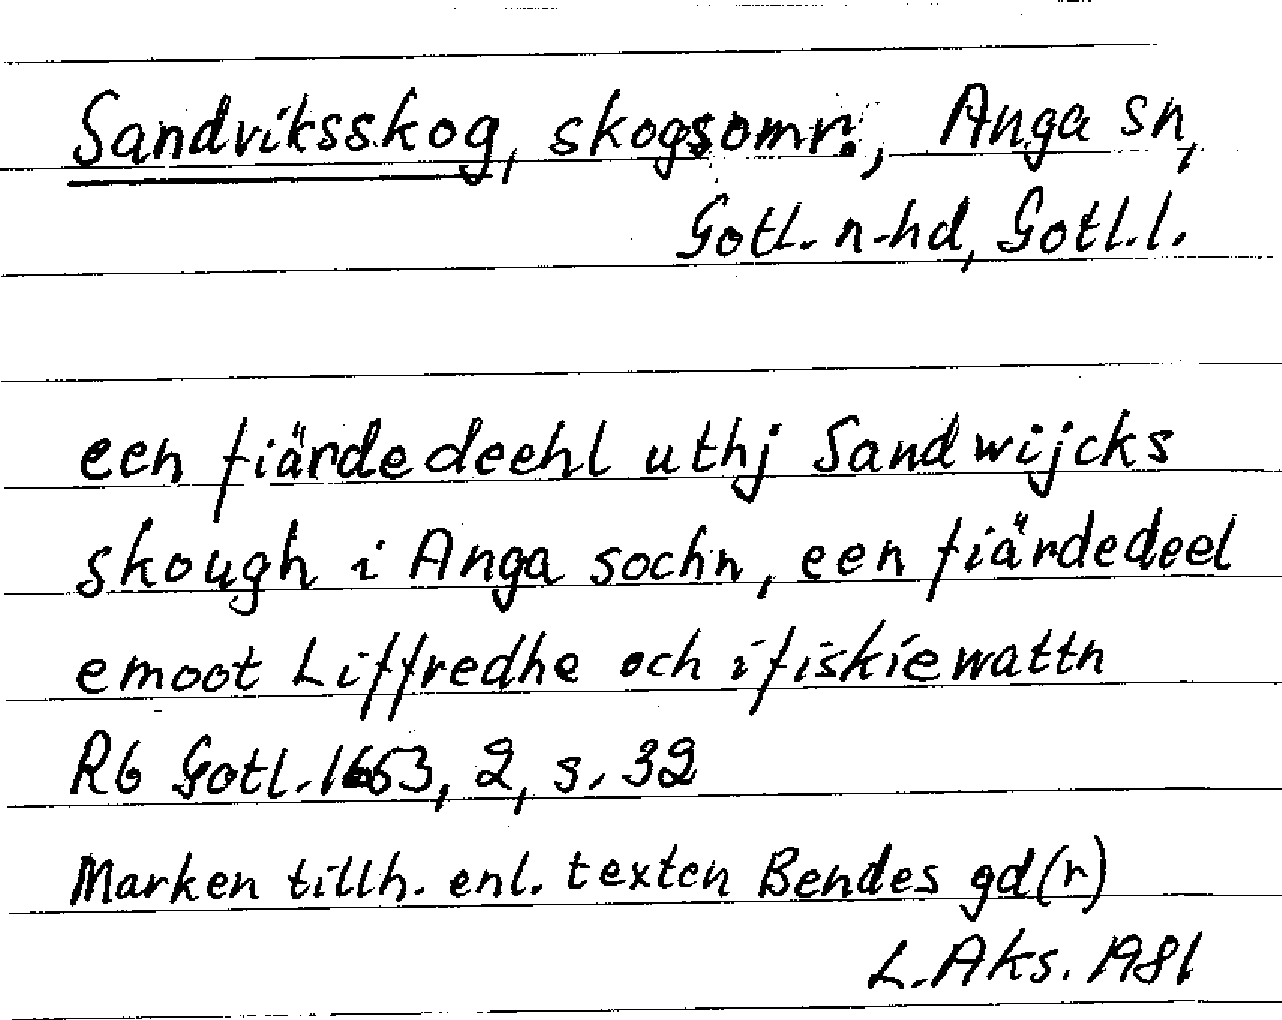 Sandviksskog, skogsomr., Anga sn,
Gotl. n-hd, Gotl.l.
een fiärdedeehl uthj Sandwijcks
skough i Anga sochn, een fiärdedeel
emoot Liffredhe och i fiskiewattn
Rb Gotl. 1653, 2, s. 32
Marken tillh. enl. texten Bendes gd(r)
L. Aks. 1981